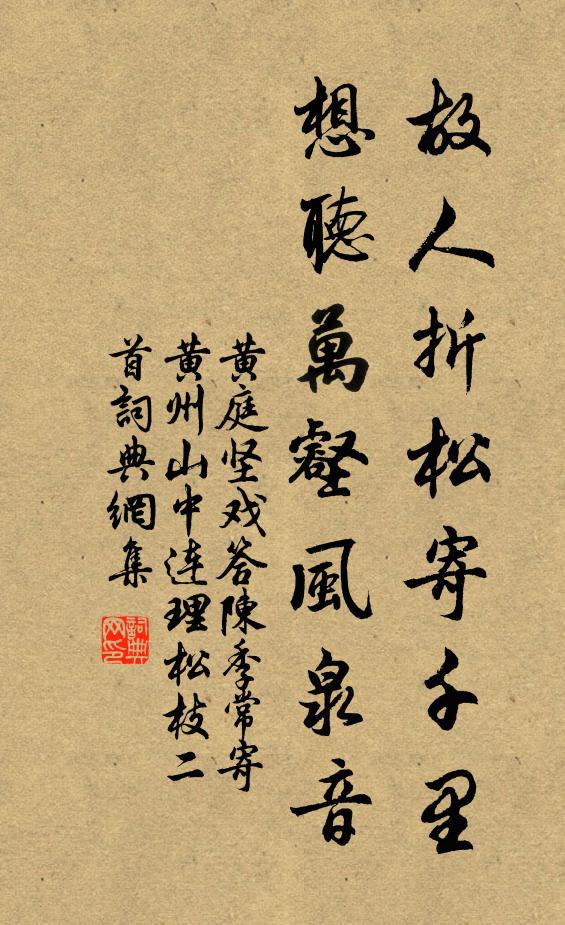 故人折松寄千里
想聽萬壑風泉音
黄庭坚戏答陳季常寄
黄州山中连理松枝二
首詞典網集
詞典
网印